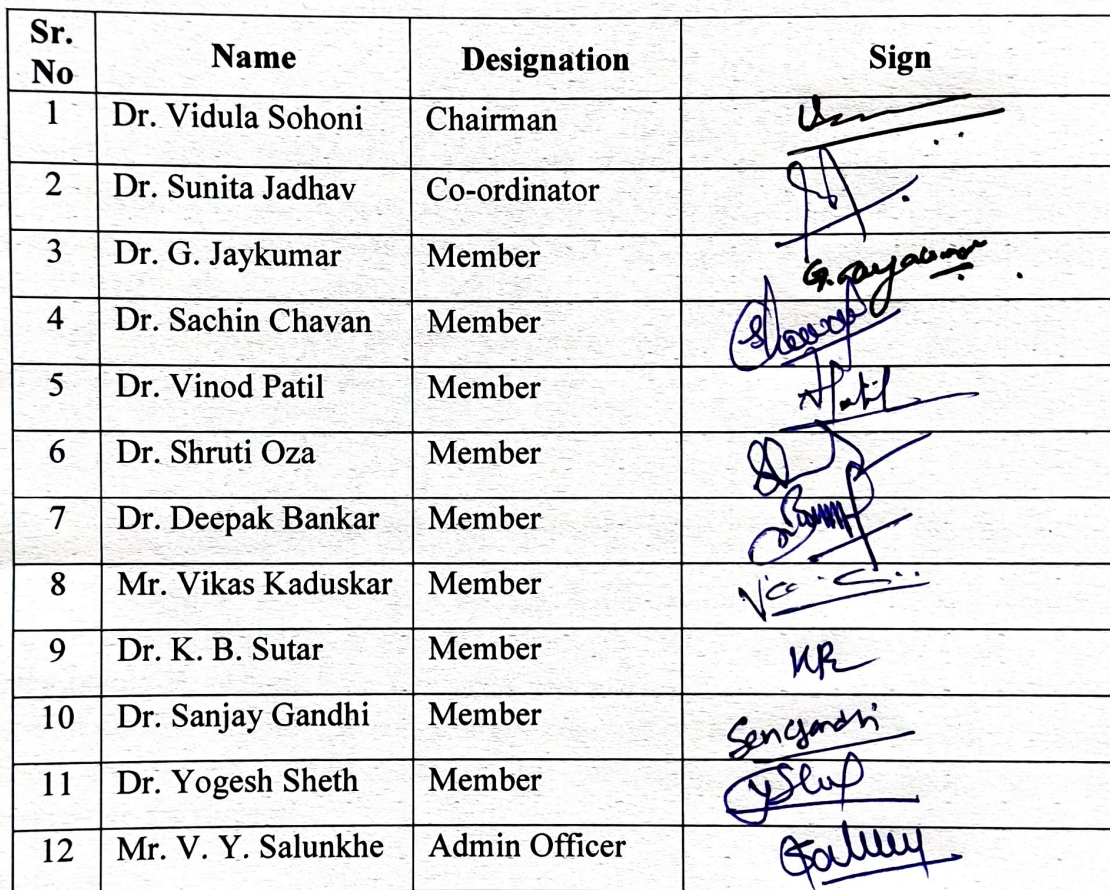 Sr. No Name Designation Sign
1 Dr. Vidula Sohoni Chairman
2 Dr. Sunita Jadhav Co-ordinator
3 Dr. G. Jaykumar Member
4 Dr. Sachin Chavan Member
5 Dr. Vinod Patil Member
6 Dr. Shruti Oza Member
7 Dr. Deepak Bankar Member
8 Mr. Vikas Kaduskar Member
9 Dr. K. B. Sutar Member
10 Dr. Sanjay Gandhi Member
11 Dr. Yogesh Sheth Member
12 Mr. V. Y. Salunkhe Admin Officer